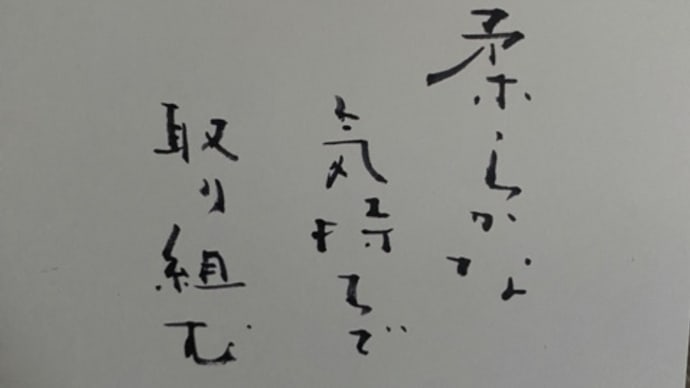 柔らかな
気持ちで
取り組む